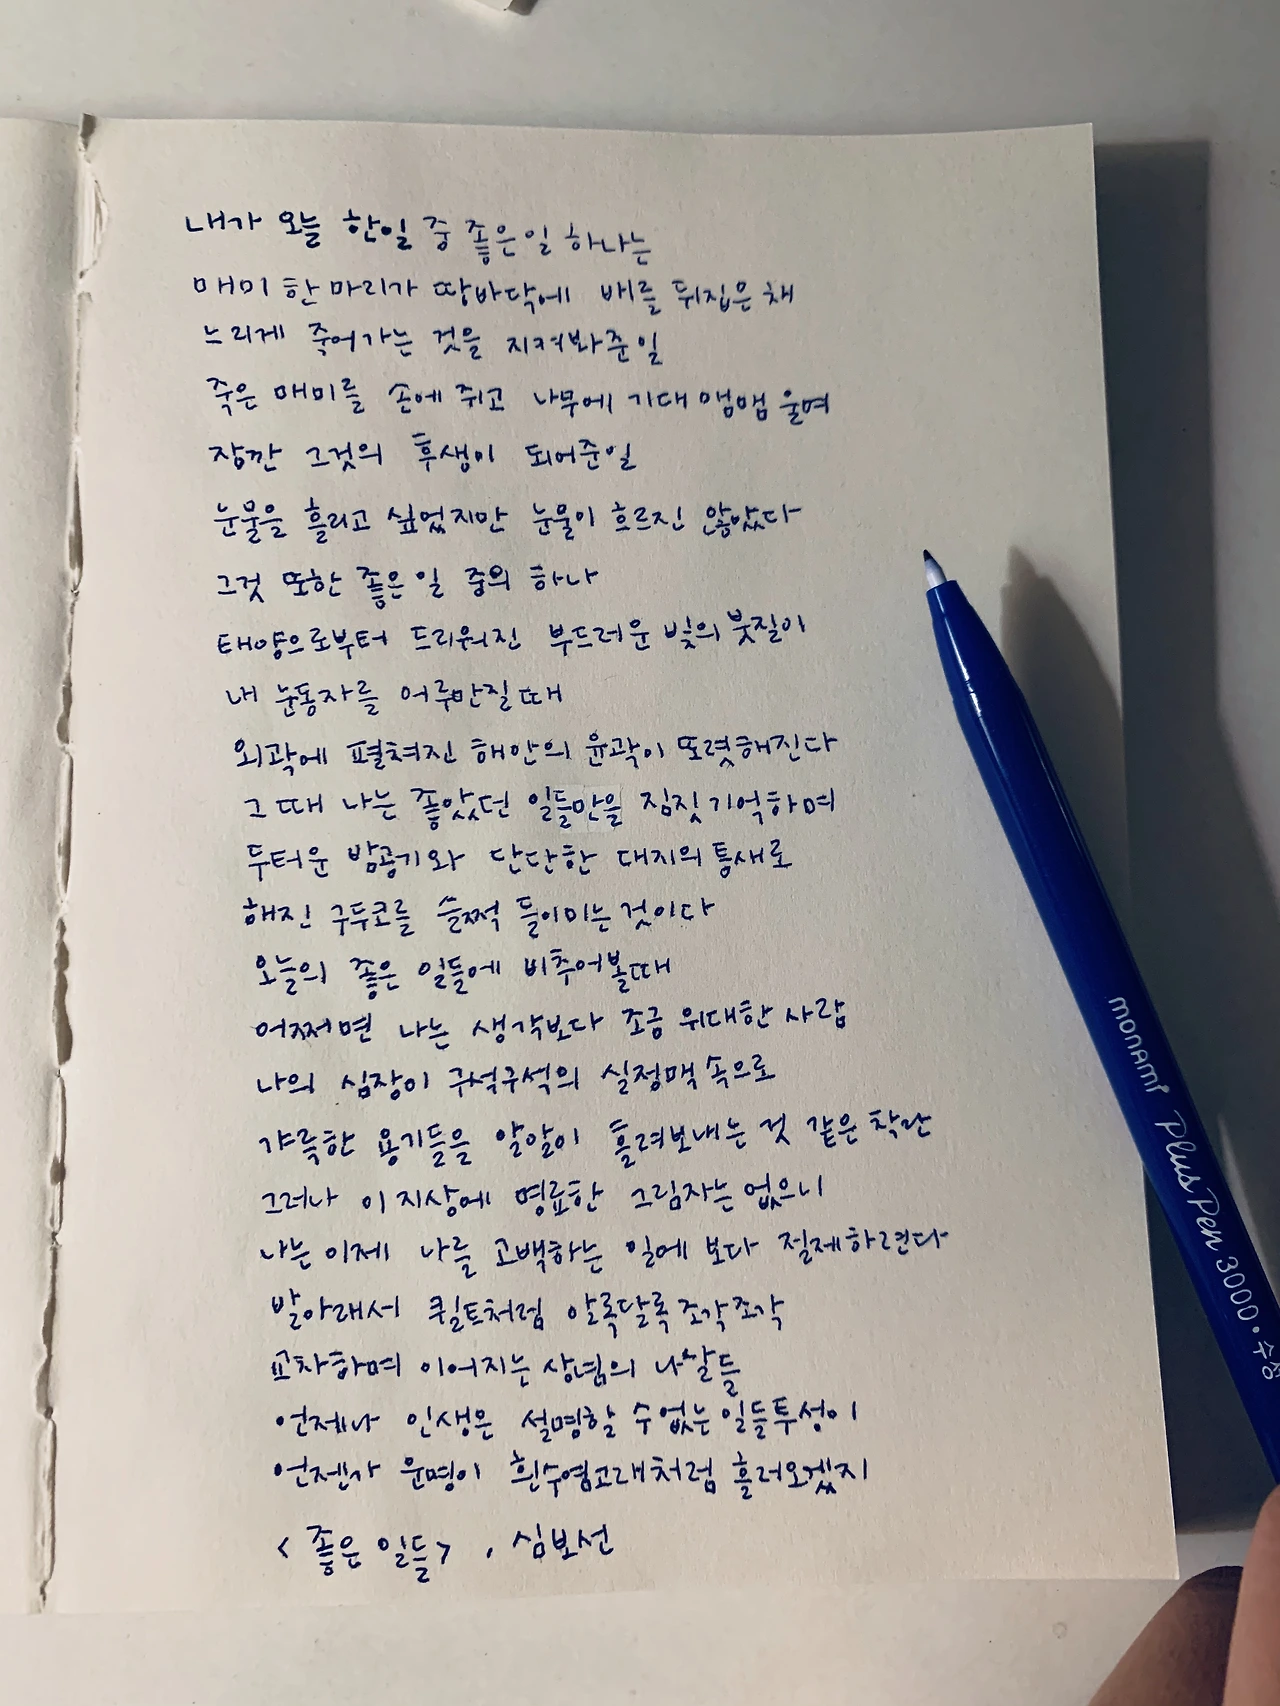 내가 오늘 한일 중 좋은일 하나는
매미 한마리가 땅바닥에 배를 뒤집은채
느리게 죽어가는 것을 지켜봐준일
죽은 매미를 손에 쥐고 나무에 기대 맴맴 울며
잠깐 그것의 후생이 되어준일
눈물을 흘리고 싶었지만 눈물이 흐르진 않았다
그것 또한 좋은 일 중의 하나
태양으로부터 드리워진 부드러운 빛의 붓질이
내 눈동자를 어루만질때
외곽에 펼쳐진 해안의 윤곽이 또렷해진다
그때 나는 좋았던 일들만을 짐짓 기억하며
두터운 밤공기와 단단한 대지의 틈새로
해진 구두코를 슬쩍 들이미는 것이다
오늘의 좋은 일들에 비추어볼때
어쩌면 나는 생각보다 조금 위대한 사람
나의 심장이 구석구석의 실정맥 속으로
갸륵한 용기들을 알알이 흘려보내는 것 같은 착란
그러나 이 지상에 명료한 그림자는 없으니
나는 이제 나를 고백하는 일에 보다 절제하련다
발아래서 퀼트처럼 알록달록 조각조각
교차하며 이어지는 상념의 나날들
언제나 인생은 설명할 수 없는 일들투성이
언젠가 운명이 흰수염고래처럼 흘러오겠지
<좋은 일들>, 심보선
monami Plus Pen 3000 • 수성